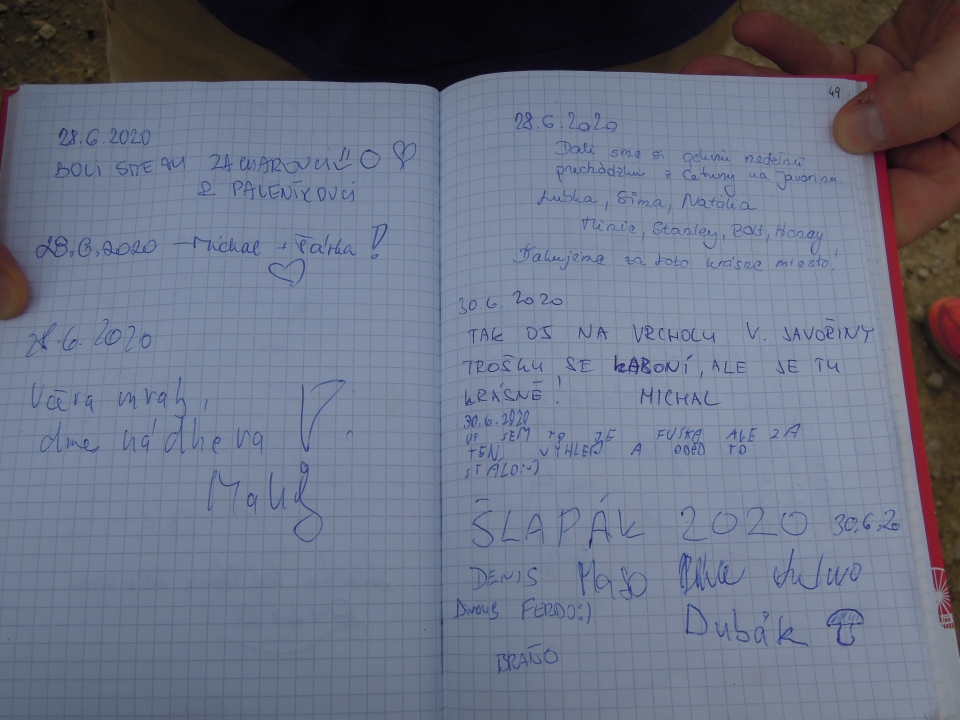 28.6.2020
BOLI SITE TU ZACHAROVCI!!
& PALENÍKOVCI
28.6.2020 - Michal + Šárka!
28.6.2020
Včera mrak,
dnes nádhera!
49
28.6.2020
Dali sme si
prechádzku z Cetuny na Javorinu.
Ľubka, Sima, Natália
Minie, Stanley, Bolt, Honey
Ďakujeme za toto krásne miesto!
30.6.2020
TAK OD NA VRCHOLU V. JAVOŘINY
TROŠKU SE KABONÍ, ALE JE TU
KRÁSNĚ! MICHAL
30.6.2020
UF SEM TO JE FUŠKA ALE ZA
TEN VÝHLED A OBĚD TO
STÁLO:-)
ŠLAPÁK 2020 30.6.20
DENIS Maso
FERDO:)
Dubák
BRAŇO